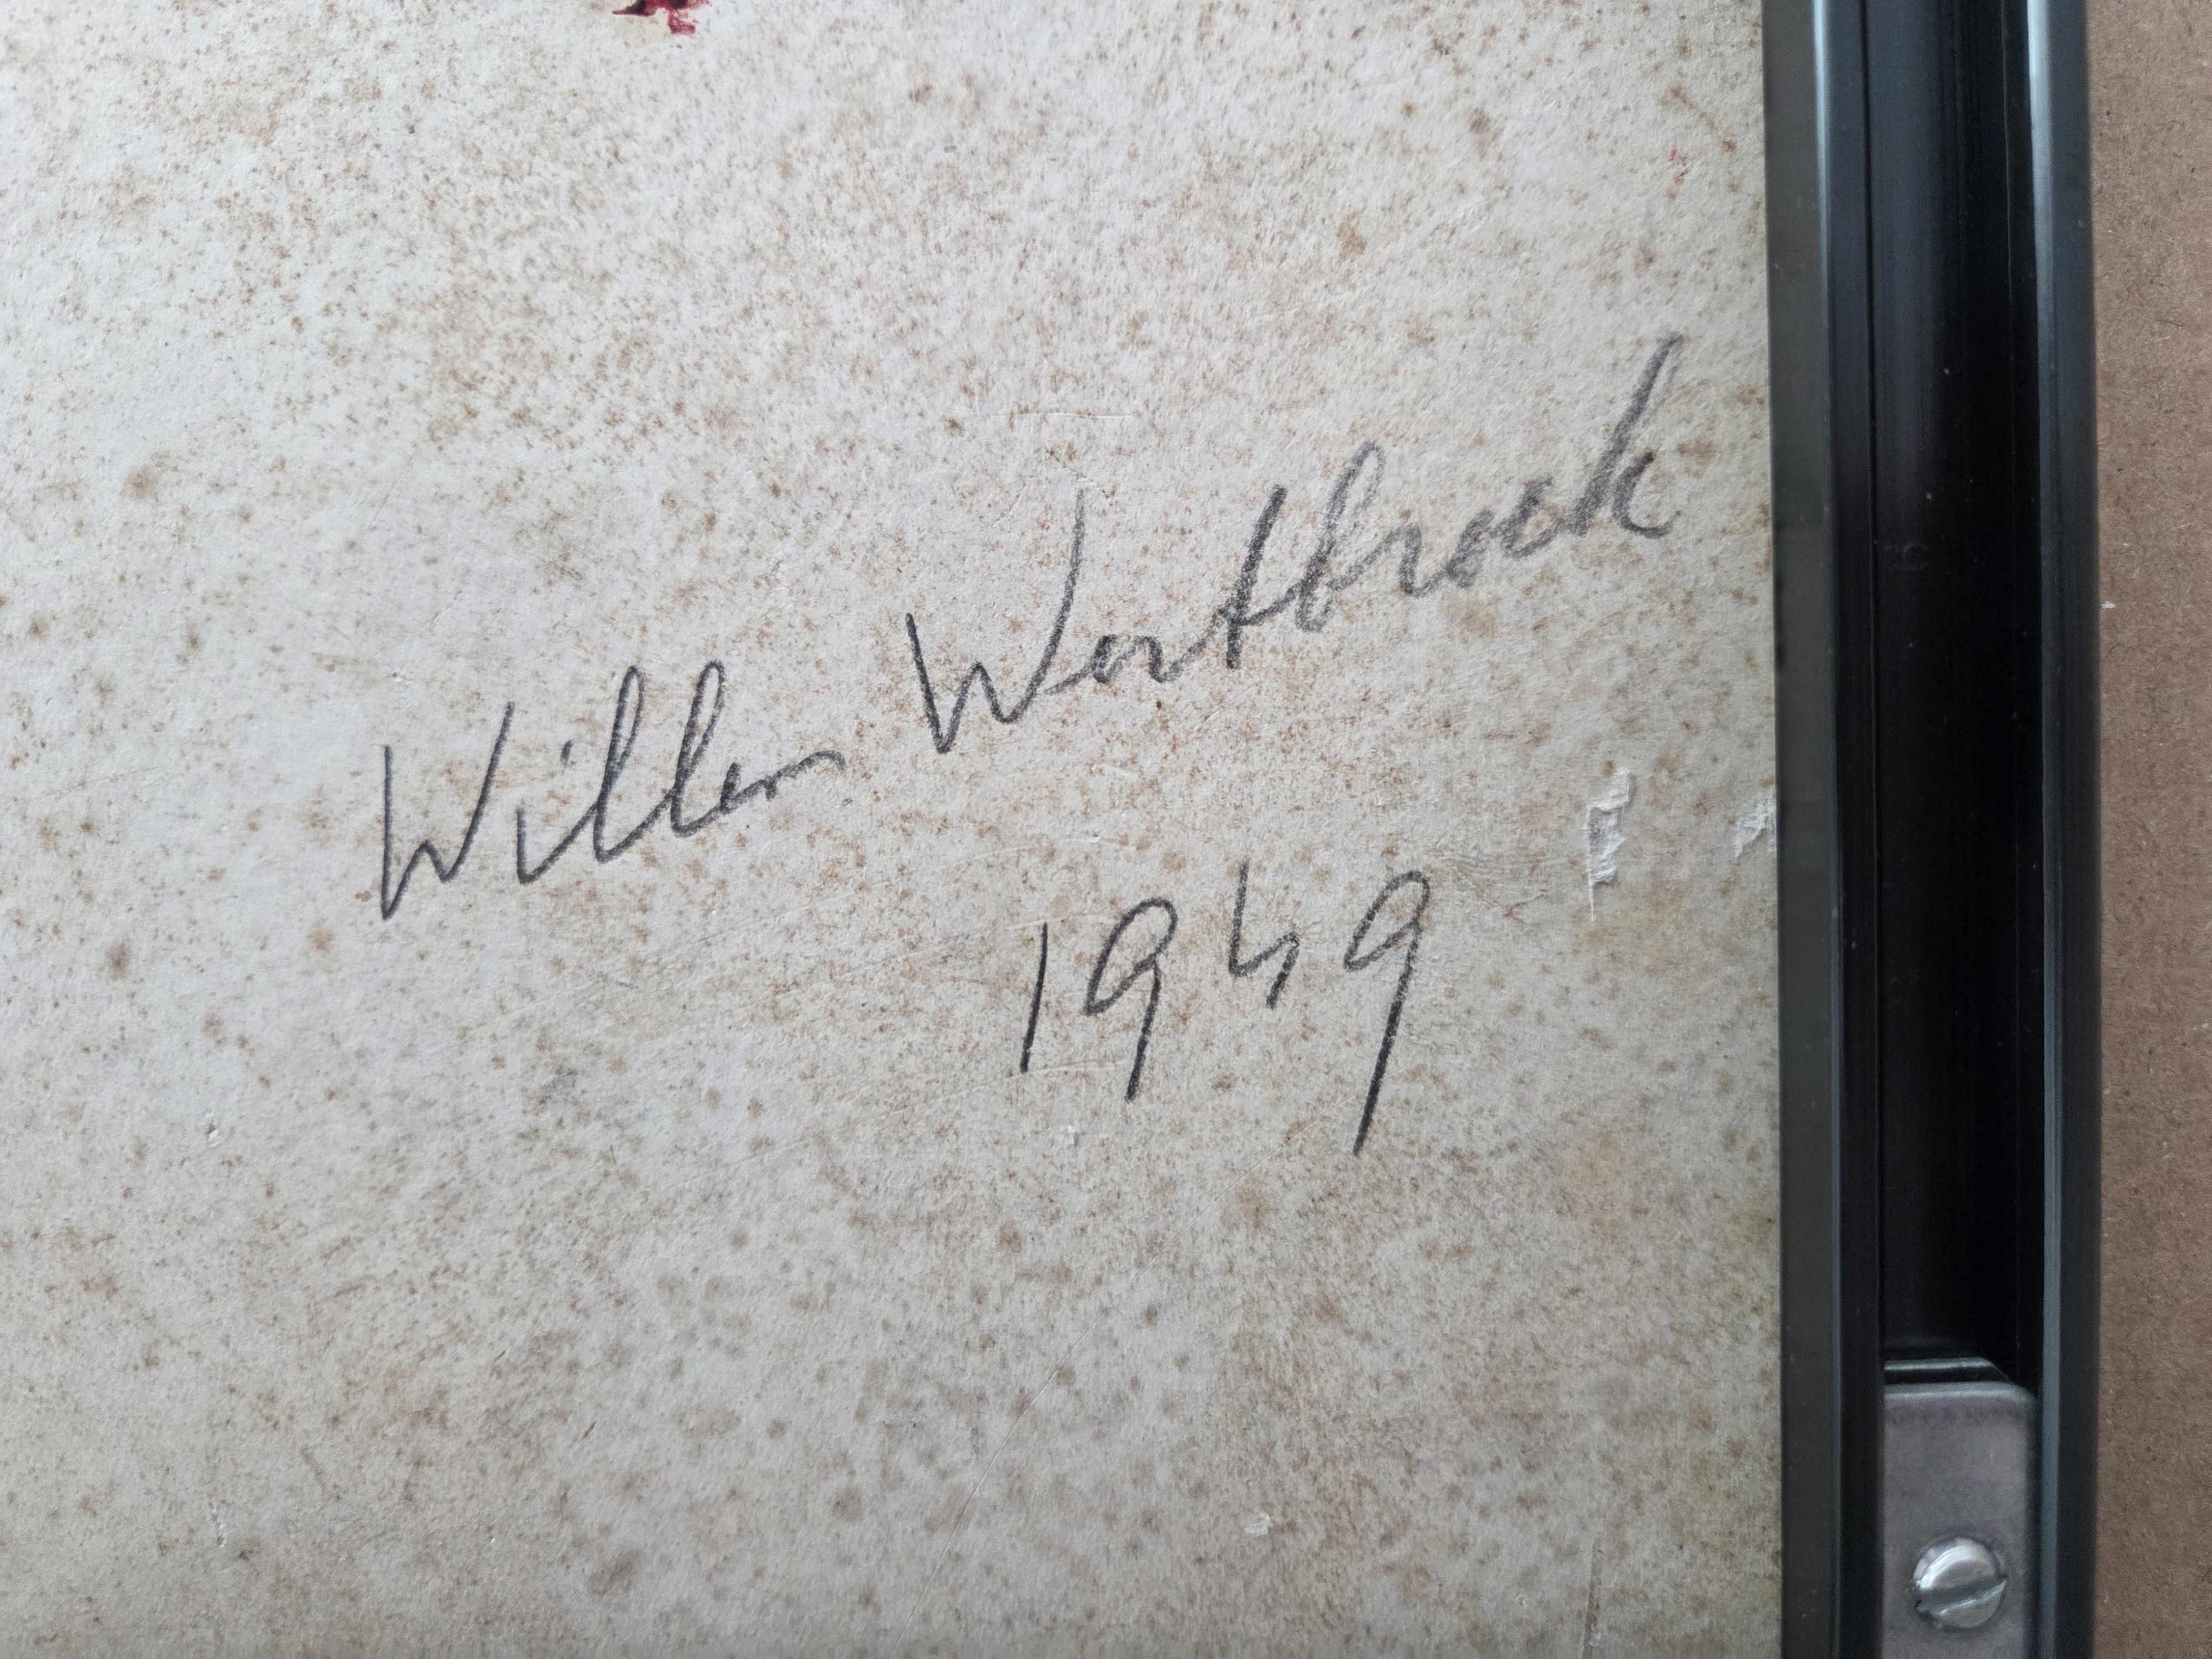 Willem Westbrock
1949